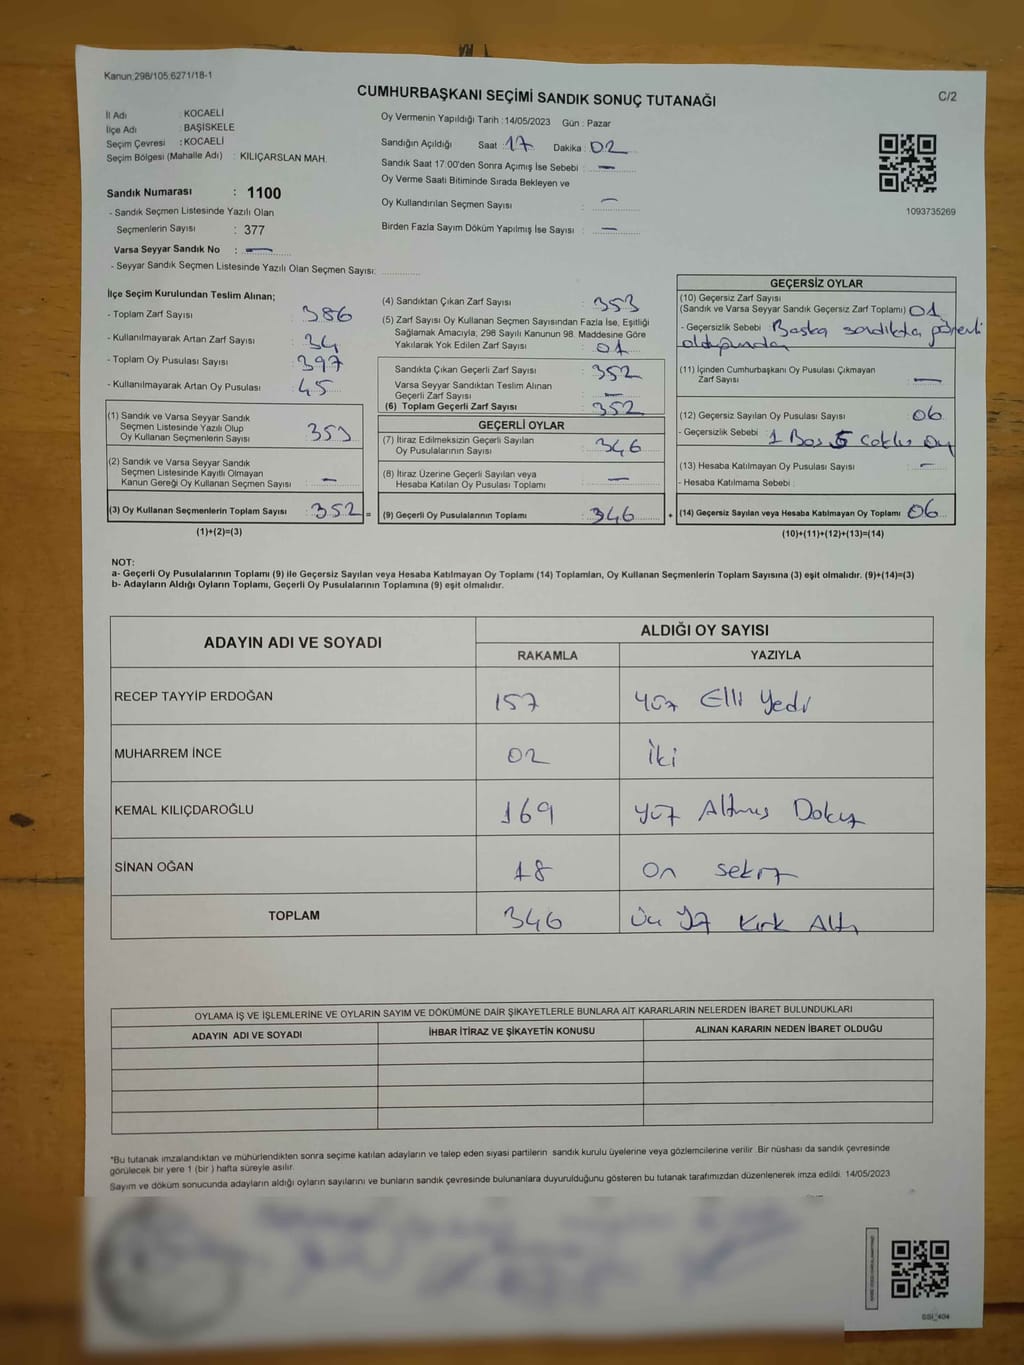 Kanun;298/105;6271/18-1
C/2
CUMHURBAŞKANI SEÇİMİ SANDIK SONUÇ TUTANAĞI
İl Adı : KOCAELİ
İlçe Adı : BAŞİSKELE
Seçim Çevresi : KOCAELİ
Seçim Bölgesi (Mahalle Adı) : KILIÇARSLAN MAH.
Sandık Numarası : 1100
- Sandık Seçmen Listesinde Yazılı Olan
Seçmenlerin Sayısı : 377
Varsa Seyyar Sandık No : —
- Seyyar Sandık Seçmen Listesinde Yazılı Olan Seçmen Sayısı:
Oy Vermenin Yapıldığı Tarih : 14/05/2023 Gün : Pazar
Sandığın Açıldığı Saat : 17 Dakika : 02
Sandık Saat 17:00'den Sonra Açımış İse Sebebi : —
Oy Verme Saati Bitiminde Sırada Bekleyen ve
Oy Kullandırılan Seçmen Sayısı : —
Birden Fazla Sayım Döküm Yapılmış İse Sayısı : —
1093735269
İlçe Seçim Kurulundan Teslim Alınan;
- Toplam Zarf Sayısı : 386
- Kullanılmayarak Artan Zarf Sayısı : 34
- Toplam Oy Pusulası Sayısı : 397
- Kullanılmayarak Artan Oy Pusulası : 45
(1) Sandık ve Varsa Seyyar Sandık
Seçmen Listesinde Yazılı Olup
Oy Kullanan Seçmenlerin Sayısı : 353
(2) Sandık ve Varsa Seyyar Sandık
Seçmen Listesinde Kayıtlı Olmayan
Kanun Gereği Oy Kullanan Seçmen Sayısı : —
(3) Oy Kullanan Seçmenlerin Toplam Sayısı : 352 =
(1)+(2)=(3)
(4) Sandıktan Çıkan Zarf Sayısı : 353
(5) Zarf Sayısı Oy Kullanan Seçmen Sayısından Fazla İse, Eşitliği
Sağlamak Amacıyla; 298 Sayılı Kanunun 98. Maddesine Göre
Yakılarak Yok Edilen Zarf Sayısı : 01
Sandıkta Çıkan Geçerli Zarf Sayısı : 352
Varsa Seyyar Sandıktan Teslim Alınan
Geçerli Zarf Sayısı : —
(6) Toplam Geçerli Zarf Sayısı : 352
GEÇERLİ OYLAR
(7) İtiraz Edilmeksizin Geçerli Sayılan
Oy Pusulalarının Sayısı : 346
(8) İtiraz Üzerine Geçerli Sayılan veya
Hesaba Katılan Oy Pusulası Toplamı : —
(9) Geçerli Oy Pusulalarının Toplamı : 346 +
GEÇERSİZ OYLAR
(10) Geçersiz Zarf Sayısı
(Sandık ve Varsa Seyyar Sandık Geçersiz Zarf Toplamı) 01
- Geçersizlik Sebebi Başka sandıkta görevli
olduğundan
(11) İçinden Cumhurbaşkanı Oy Pusulası Çıkmayan
Zarf Sayısı : —
(12) Geçersiz Sayılan Oy Pusulası Sayısı : 06
- Geçersizlik Sebebi : 1 Boş 5 Çoklu oy
(13) Hesaba Katılmayan Oy Pusulası Sayısı : —
- Hesaba Katılmama Sebebi :
(14) Geçersiz Sayılan veya Hesaba Katılmayan Oy Toplamı : 06
(10)+(11)+(12)+(13)=(14)
NOT:
a- Geçerli Oy Pusulalarının Toplamı (9) ile Geçersiz Sayılan veya Hesaba Katılmayan Oy Toplamı (14) Toplamları, Oy Kullanan Seçmenlerin Toplam Sayısına (3) eşit olmalıdır. (9)+(14)=(3)
b- Adayların Aldığı Oyların Toplamı, Geçerli Oy Pusulalarının Toplamına (9) eşit olmalıdır.
ADAYIN ADI VE SOYADI ALDIĞI OY SAYISI
RAKAMLA YAZIYLA
RECEP TAYYİP ERDOĞAN 157 Yüz Elli Yedi
MUHARREM İNCE 02 İki
KEMAL KILIÇDAROĞLU 169 Yüz Altmış Dokuz
SİNAN OĞAN 18 On sekiz
TOPLAM 346 Üç Yüz Kırk Altı
OYLAMA İŞ VE İŞLEMLERİNE VE OYLARIN SAYIM VE DÖKÜMÜNE DAİR ŞİKAYETLERLE BUNLARA AİT KARARLARIN NELERDEN İBARET BULUNDUKLARI
ADAYIN ADI VE SOYADI İHBAR İTİRAZ VE ŞİKAYETİN KONUSU ALINAN KARARIN NEDEN İBARET OLDUĞU
*Bu tutanak imzalandıktan ve mühürlendikten sonra seçime katılan adayların ve talep eden siyasi partilerin sandık kurulu üyelerine veya gözlemcilerine verilir. Bir nüshası da sandık çevresinde
görülecek bir yere 1 (bir ) hafta süreyle asılır.
Sayım ve döküm sonucunda adayların aldığı oyların sayılarını ve bunların sandık çevresinde bulunanlara duyurulduğunu gösteren bu tutanak tarafımızdan düzenlenerek imza edildi. 14/05/2023
SSİ_404